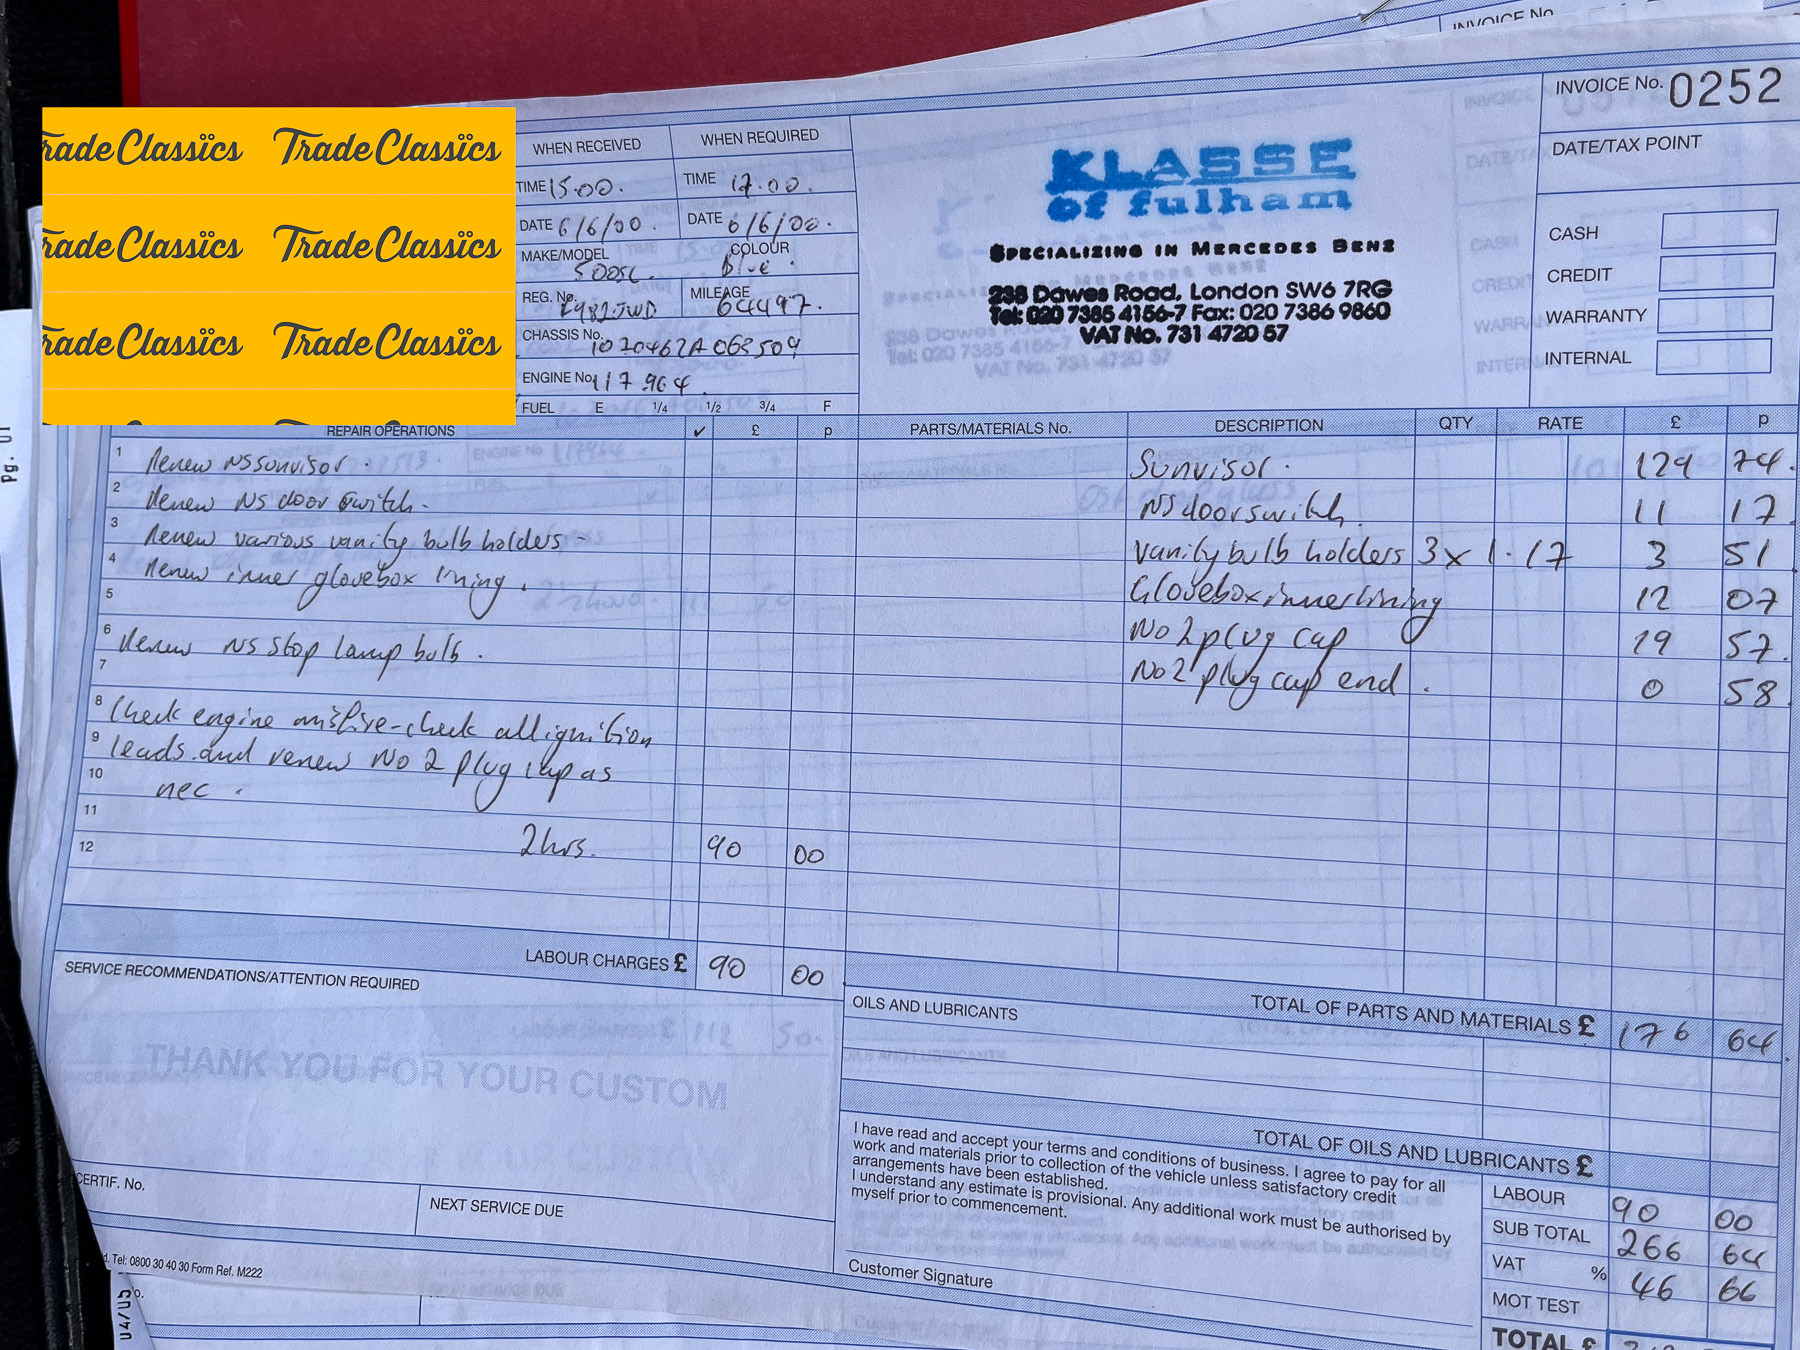 INVOICE No.
INVOICE No. 0252
DATE/TAX POINT
Trade Classics Trade Classics
Trade Classics Trade Classics
Trade Classics Trade Classics
WHEN RECEIVED WHEN REQUIRED
TIME 15.00. TIME 17.00.
DATE 6/6/00. DATE 6/6/00.
MAKE/MODEL COLOUR
500SL. Blue.
REG. No. MILEAGE
64497.
CHASSIS No.
ENGINE No. 117 964.
FUEL E 1/4 1/2 3/4 F
KLASSE
of fulham
SPECIALIZING IN MERCEDES BENZ
238 Dawes Road, London SW6 7RG
Tel: 020 7385 4156-7 Fax: 020 7386 9860
VAT No. 731 4720 57
CASH
CREDIT
WARRANTY
INTERNAL
REPAIR OPERATIONS ✓ £ p
1 Renew NS sunvisor.
2 Renew NS door switch.
3 Renew various vanity bulb holders -
4 Renew inner glovebox lining.
5
6 Renew NS stop lamp bulb.
7
8 Check engine misfire - check all ignition
9 leads and renew No 2 plug cap as
10 nec.
11
12 2 hrs. 90 00
LABOUR CHARGES £ 90 00
PARTS/MATERIALS No. DESCRIPTION QTY RATE £ p
Sunvisor. 129 74.
NS door switch. 11 17
Vanity bulb holders 3 x 1.17 3 51
Glovebox inner lining 12 07
No 2 plug cap 19 57.
No 2 plug cap end. 0 58
TOTAL OF PARTS AND MATERIALS £ 176 64.
SERVICE RECOMMENDATIONS/ATTENTION REQUIRED
THANK YOU FOR YOUR CUSTOM
CERTIF. No.
NEXT SERVICE DUE
Tel: 0800 30 40 30 Form Ref. M222
OILS AND LUBRICANTS
TOTAL OF OILS AND LUBRICANTS £
I have read and accept your terms and conditions of business. I agree to pay for all
work and materials prior to collection of the vehicle unless satisfactory credit
arrangements have been established.
I understand any estimate is provisional. Any additional work must be authorised by
myself prior to commencement.
Customer Signature
LABOUR 90 00
SUB TOTAL 266 64
VAT % 46 66
MOT TEST
TOTAL £